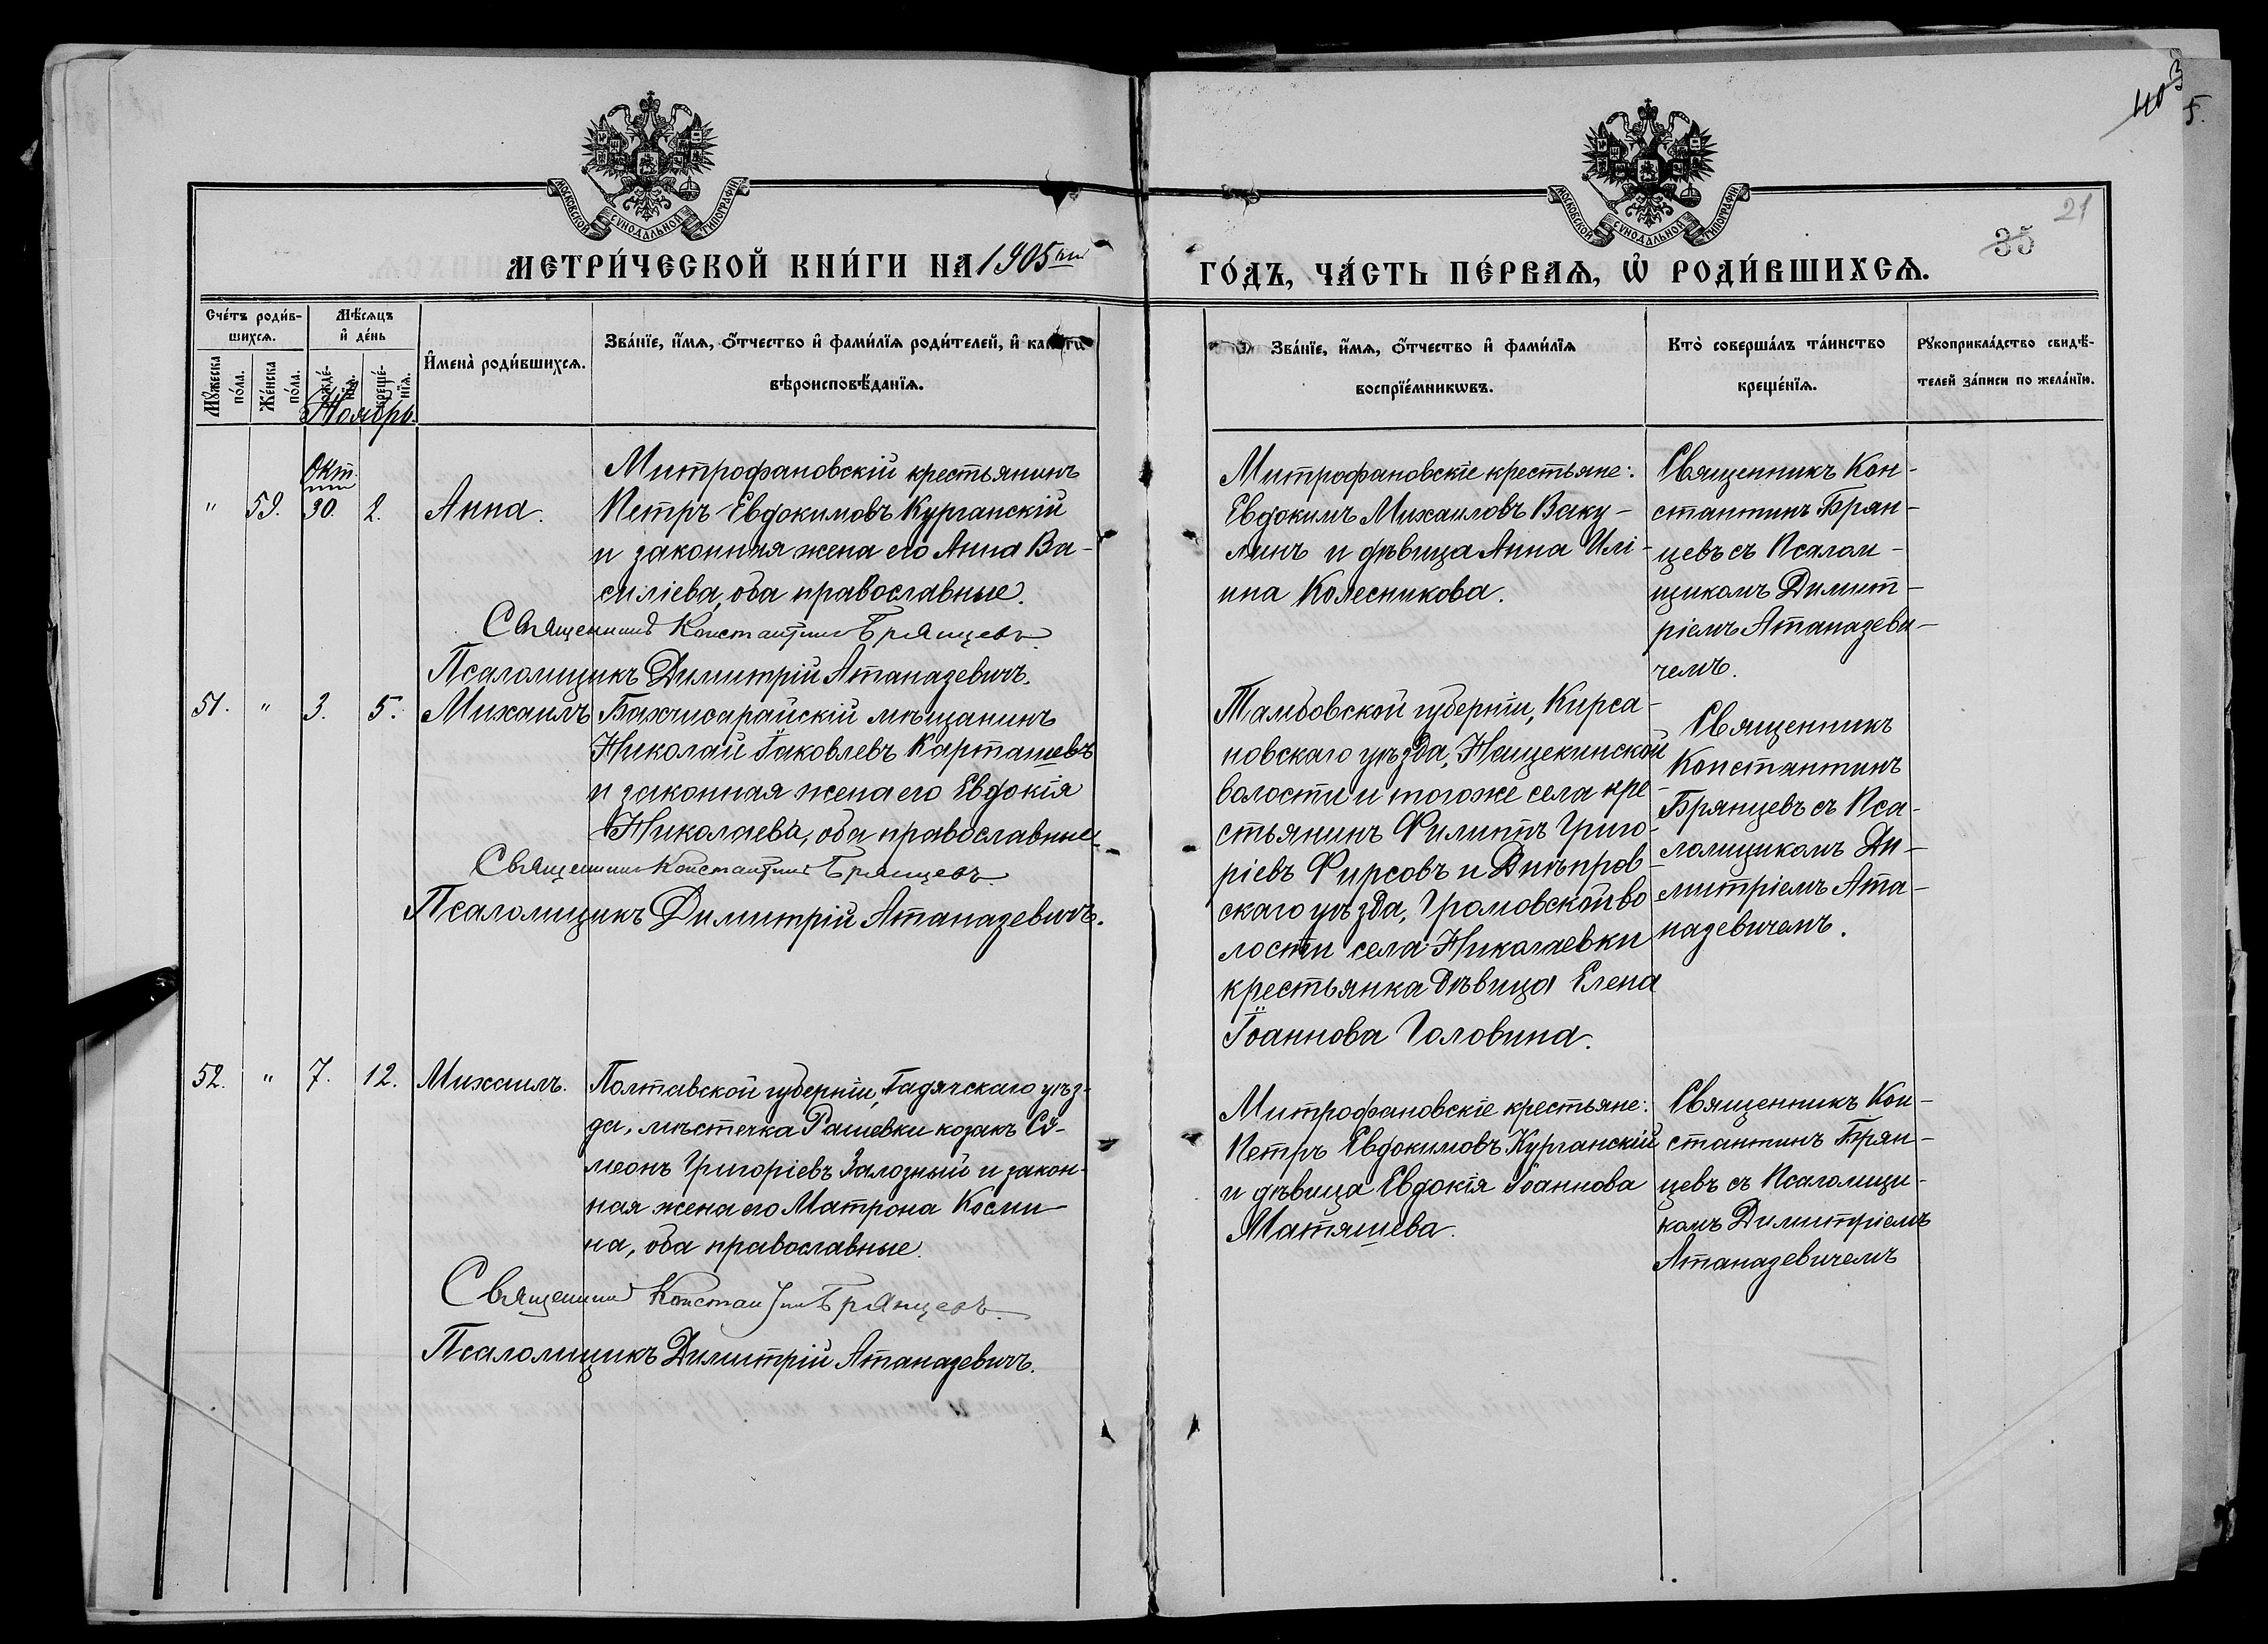 403
5.
МОСКОВСКОЙ СѴНОДАЛЬНОЙ ТИПОГРАФІИ
МОСКОВСКОЙ СѴНОДАЛЬНОЙ ТИПОГРАФІИ
21
35
МЕТРИ́ЧЕСКОЙ КНИ́ГИ НА 1905
ГО́ДЪ, ЧА́СТЬ ПЕ́РВАѦ, Ѡ РОДИ́ВШИХСѦ.
Сче́тъ роди́в-
шихсѧ.
Мѣ́сѧцъ
и҆ де́нь
Мꙋ́жеска
по́ла.
Же́нска
по́ла.
рожде́-
нїѧ.
креще́-
нїѧ.
И҆мена̀ роди́вшихсѧ.
Зва́нїе, и҆́мѧ, ѻ҆́тчество и҆ фами́лїѧ роди́телей, и҆
вѣроисповѣ́данїѧ.
Зва́нїе, и҆́мѧ, ѻ҆́тчество и҆ фами́лїѧ
воспрїе́мникѡвъ.
Кто̀ соверша́лъ та́инство
креще́нїѧ.
Рꙋкоприкла́дство свидѣ́-
телей за́писи по жела́нїю.
Ноябрь.
Окт.
" 59. 30. 2. Анна.
Митрофановскій крестьянинъ
Петръ Евдокимовъ Курганскій
и законная жена его Анна Ва-
силіева, оба православные.
Священникъ Константинъ Брянцевъ.
Псаломщикъ Димитрій Атаназевичъ.
Митрофановскіе крестьяне:
Евдокимъ Михаиловъ Ваку-
линъ и дѣвица Анна Илі-
ина Колесникова.
Священникъ Кон-
стантинъ Брян-
цевъ съ Псалом-
щикомъ Димит-
ріемъ Атаназеви-
чемъ.
51. " 3. 5. Михаилъ
Бахчисарайскій мѣщанинъ
Николай Іаковлевъ Карташевъ
и законная жена его Евдокія
Николаева, оба православные.
Священникъ Константинъ Брянцевъ.
Псаломщикъ Димитрій Атаназевичъ.
Тамбовской губерніи, Кирса-
новскаго уѣзда, Нащекинской
волости и тогоже села кре-
стьянинъ Филиппъ Григо-
ріевъ Фирсовъ и Днѣпров-
скаго уѣзда, Громовской во
лости села Николаевки
крестьянка дѣвица Елена
Іоаннова Головина.
Священникъ
Константинъ
Брянцевъ съ Пса-
ломщикомъ Ди-
митріемъ Ата-
назевичемъ.
52. " 7. 12. Михаилъ.
Полтавской губерніи, Гадячскаго уѣз-
да, мѣстечка Рашевки козакъ Си-
меонъ Григоріевъ Залозный и закон-
ная жена его Матрона Косми-
на, оба православные.
Священникъ Константинъ Брянцевъ.
Псаломщикъ Димитрій Атаназевичъ.
Митрофановскіе крестьяне:
Петръ Евдокимовъ Курганскій
и дѣвица Евдокія Іоаннова
Матяшева.
Священникъ Кон-
стантинъ Брян-
цевъ съ Псаломщи-
комъ Димитріемъ
Атаназевичемъ